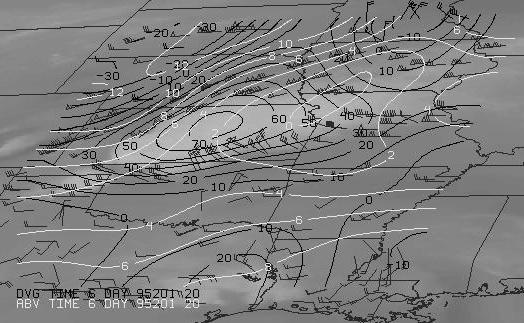 20
30
10
6
10
8
6
40
10
-12
0
-10
20
10
-30
12
10
8
6
4
2
60
50
40
30
20
4
50
70
30
40
2
20
10
10
4
0
0
4
6
10
20
6
8
10
DVG TIME 6 DAY 95201 20
ABV TIME 6 DAY 95201 20